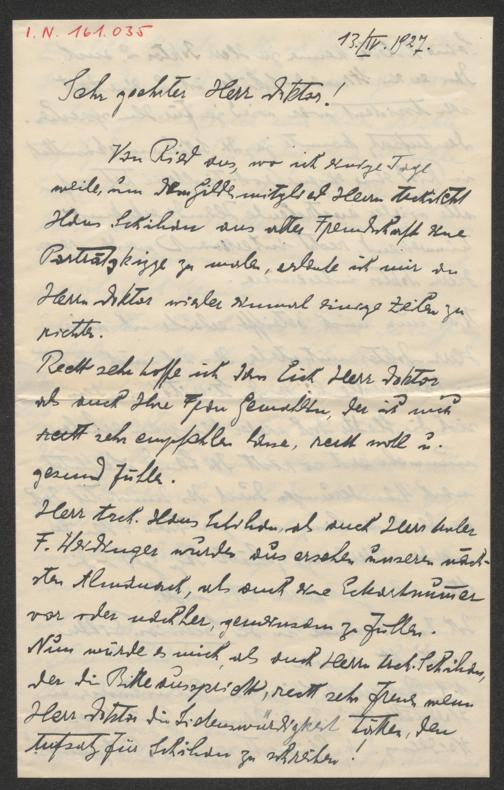 I. N. 161.035
13./IV. 1927.
Sehr geehrter Herr Doktor!
Von Ried aus, wo ich einige Tage
weile, um dem Gildemitglied Herrn Architekt
Hans Schihan aus alter Freundschaft eine
Porträtskizze zu malen, erlaube ich mir an
Herrn Doktor wieder einmal einige Zeilen zu
richten.
Recht sehr hoffe ich dass sich Herr Doktor
als auch Ihre Frau Gemahlin, der ich mich
recht sehr empfehlen lasse, recht wohl u.
gesund fühlen.
Herr Arch. Hans Schihan, als auch Herr Maler
F. Weidinger wurden aus ersehen unseren näch-
sten Almanach, als auch eine Eckartnummer
vor oder nachher, gemeinsam zu füllen.
Nun würde es mich, als auch Herrn Arch. Schihan,
der die Bitte ausspricht, recht sehr freuen wenn
Herr Doktor die Liebenswürdigkeit hätten, den
Aufsatz für Schihan zu schreiben!